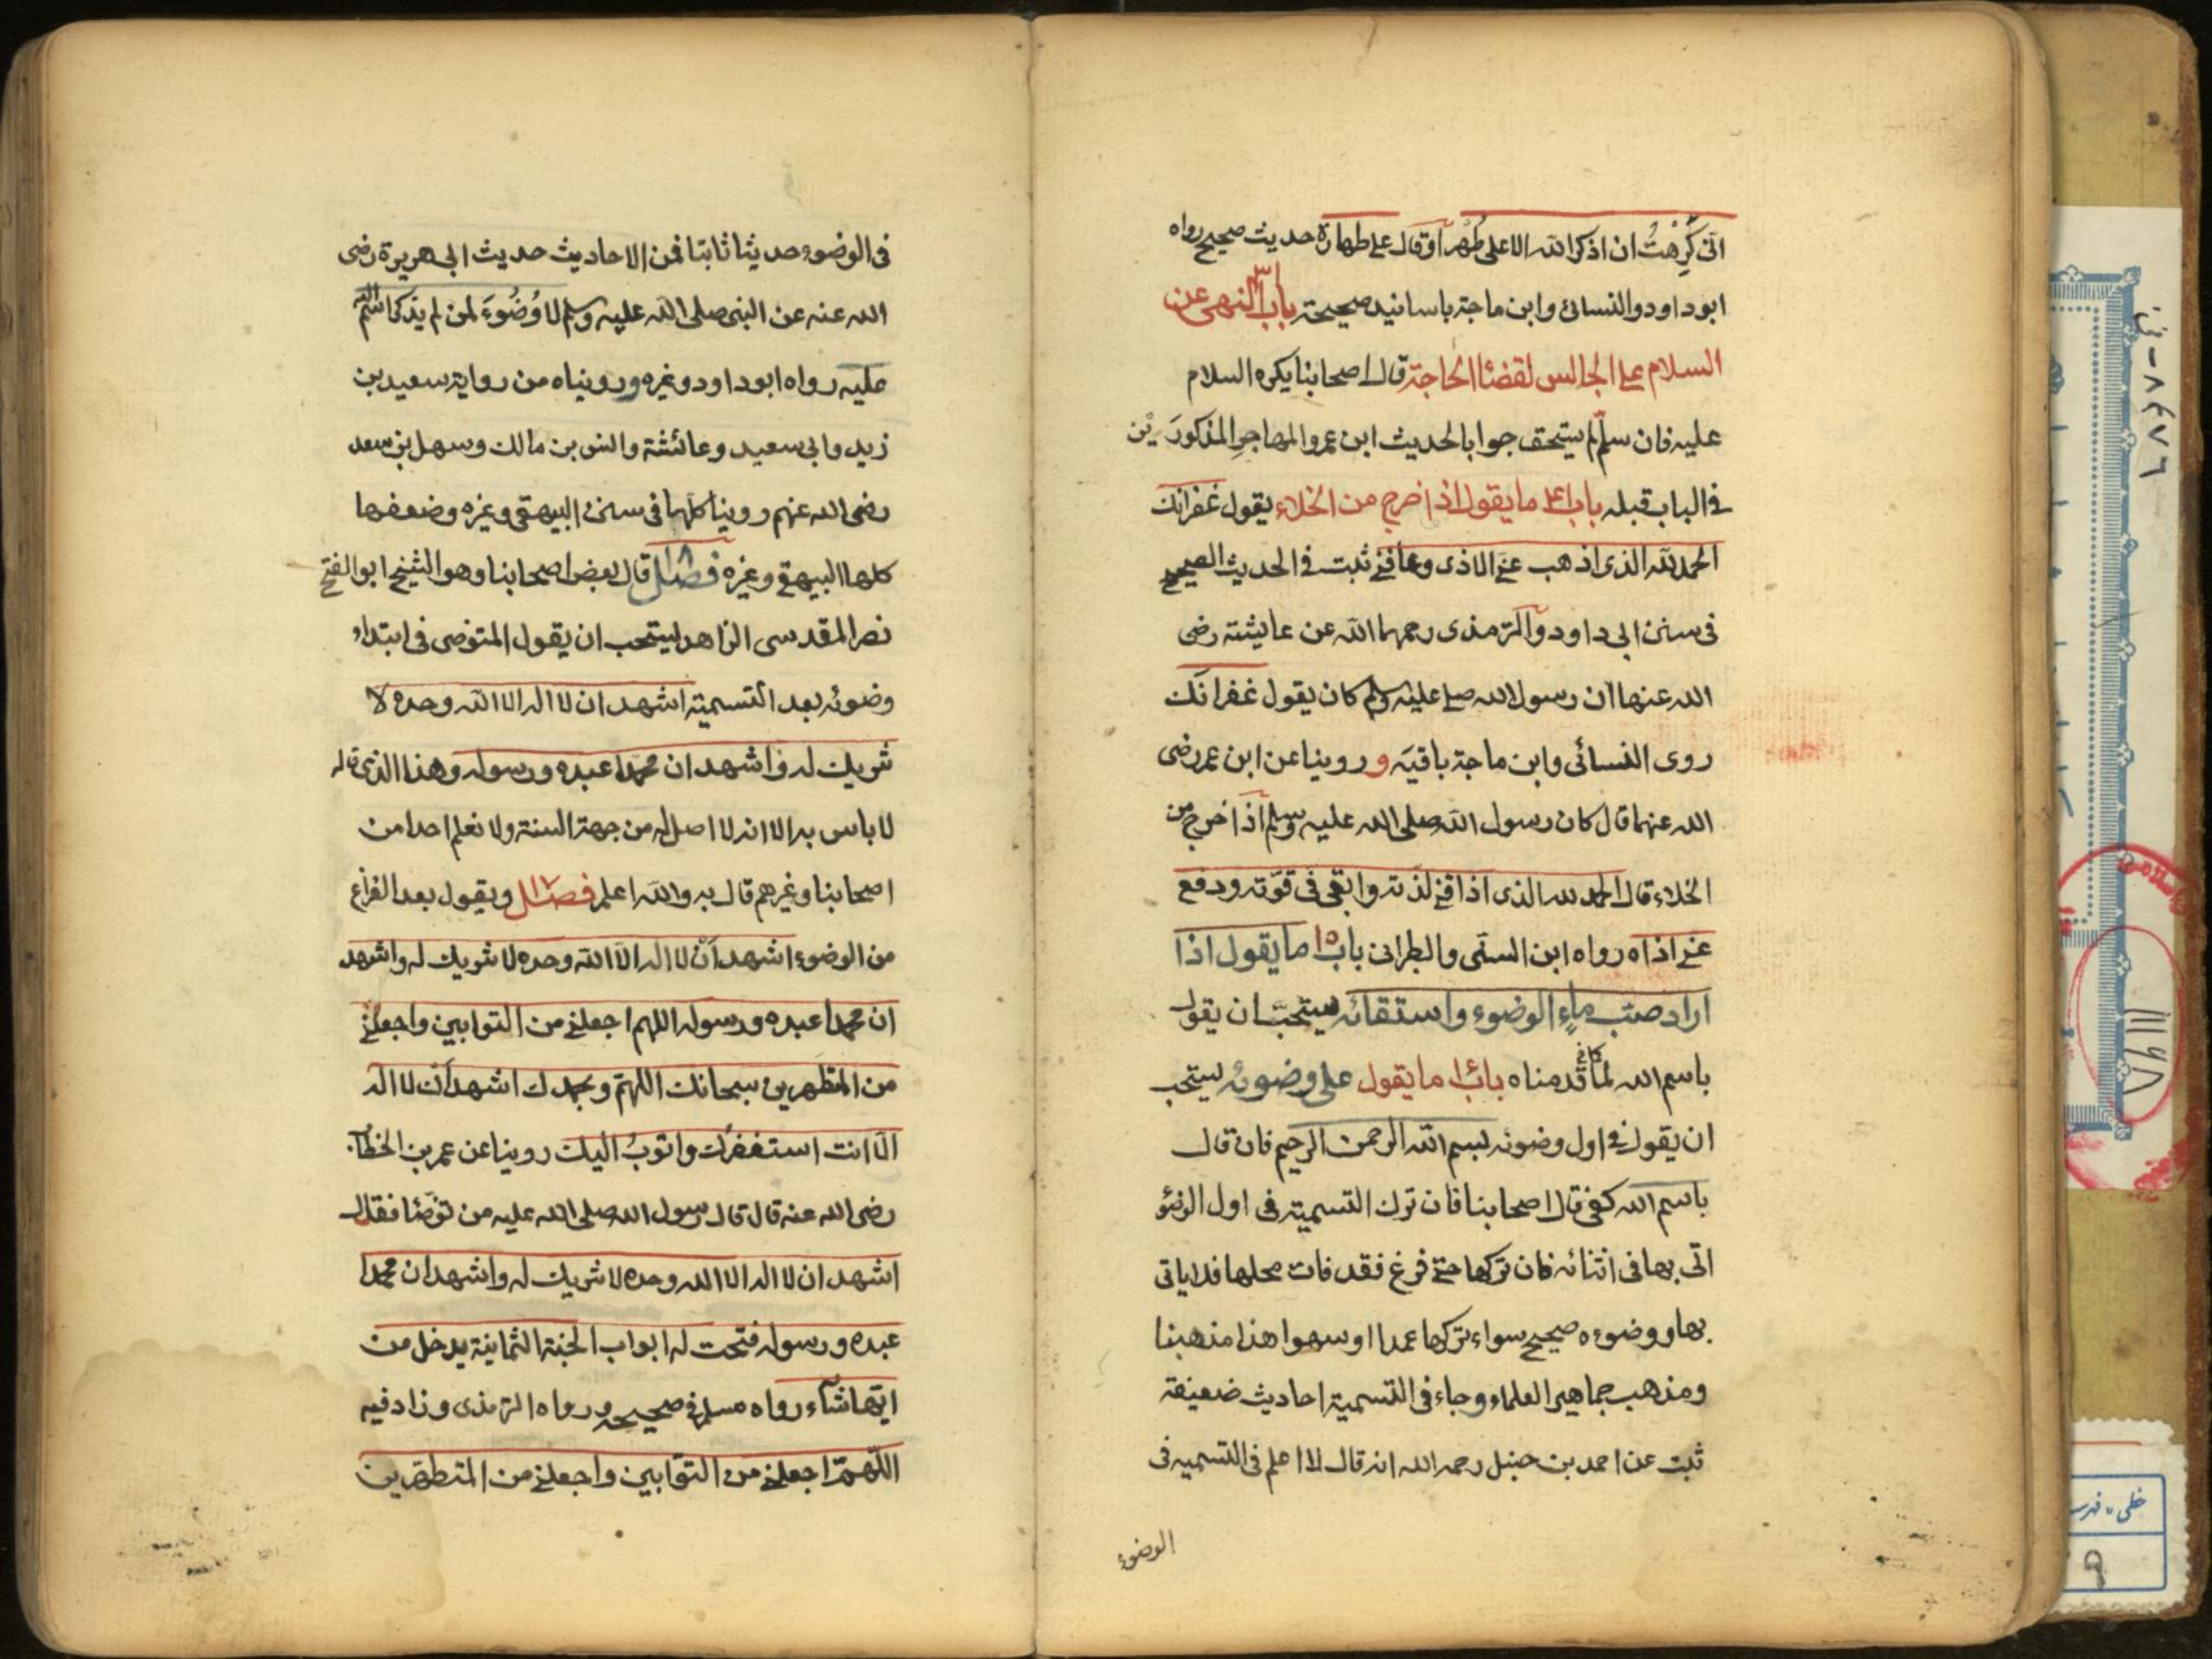 انى كَرِهْتُ ان اذكر الله الا على طُهْر او قال على طهارة حديث صحيح رواه
ابوداود والنسائى وابن ماجة باسانيد صحيحة باب النهى عن
السلام على الجالس لقضاء الحاجة قال اصحابنا يكره السلام
عليه فان سلّم لم يستحق جوابا لحديث ابن عمر والمهاجر المذكورَيْن
فى الباب قبله باب ما يقول اذا خرج من الخلاء يقول غفرانك
الحمد لله الذى اذهب عنى الاذى وعافنى ثبت فى الحديث الصحيح
فى سنن ابى داود والترمذى رحمهما الله عن عايشة رضى
الله عنها ان رسول الله صلى عليه وسلم كان يقول غفرانك
روى النسائى وابن ماجة باقيه وروينا عن ابن عمر رضى
الله عنهما قال كان رسول الله صلى الله عليه وسلم اذا خرج من
الخلاء قال الحمد لله الذى اذاقنى لذته وابقى فى قوّته ودفع
عنى اذاه رواه ابن السنى والطبرانى باب ١٥ ما يقول اذا
اراد صبّ ماء الوضوء واستقائه يستحبّ ان يقول
باسم الله لما قدمناه باب ما يقول على وضوئه يستحب
ان يقول فى اول وضوئه بسم الله الرحمن الرحيم فان قال
باسم الله كفى قال اصحابنا فان ترك التسمية فى اول الوضؤ
اتى بها فى اثنائه فان تركها حتى فرغ فقد فات محلها فلا ياتى
بها ووضوءه صحيح سواء تركها عمدا او سهوا هذا مذهبنا
ومذهب جماهير العلماء وجاء فى التسمية احاديث ضعيفة
ثبت عن احمد بن حنبل رحمه الله انه قال لا اعلم فى التسميه فى
الوضوء
فى الوضوء حديثا ثابتا فمن الاحاديث حديث ابى هريرة رضى
الله عنه عن النبى صلى الله عليه وسلم لا وُضُوءَ لمن لم يذكر اسم الله
عليه رواه ابوداود وغيره ورويناه من رواية سعيد بن
زيد وابى سعيد وعائشة وانس بن مالك وسهل بن سعد
رضى الله عنهم روينا كلها فى سنن البيهقى وغيره وضعفها
كلها البيهقى وغيره فصل قال بعض اصحابنا وهو الشيخ ابو الفتح
نصر المقدسى الزاهد يستحب ان يقول المتوضى فى ابتداء
وضوئه بعد التسمية اشهد ان لا اله الا الله وحده لا
شريك له واشهد ان محمدا عبده ورسوله وهذا الذى قاله
لا باس به الا انه لا اصل له من جهة السنة ولا نعلم احدا من
اصحابنا وغيرهم قال به والله اعلم فصل ويقول بعد الفراغ
من الوضوء اشهد اَنْ لا اله الّا الله وحده لا شريك له واشهد
ان محمدا عبده ورسوله اللهم اجعلنى من التوابين واجعلنى
من المتطهرين سبحانك اللهمّ وبحمدك اشهد ان لا اله
الّا انت استغفرك واتوبُ اليك روينا عن عمر بن الخطاب
رضى الله عنه قال قال رسول الله صلى الله عليه من توضّئا فقال
اشهد ان لا اله الا الله وحده لا شريك له واشهد ان محمدا
عبده ورسوله فتحت له ابواب الجنة الثمانية يدخل من
ايّها شآء رواه مسلم فى صحيحه ورواه الترمذى وزاد فيه
اللّهمّ اجعلنى من التوّابين واجعلنى من المتطهّرين
٨٤٧٦
خطى ، فهرست